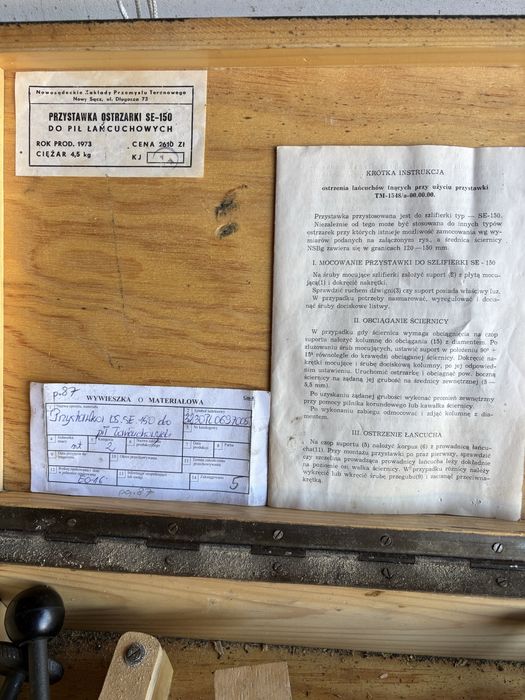 Nowosądeckie Zakłady Przemysłu Terenowego
Nowy Sącz, ul. Długosza 73
PRZYSTAWKA OSTRZARKI SE-150
DO PIŁ ŁAŃCUCHOWYCH
ROK PROD. 1973 CENA 2610 ZŁ
CIĘŻAR 4,5 kg KJ
KRÓTKA INSTRUKCJA
ostrzenia łańcuchów tnących przy użyciu przystawki
TM-1548/a-00.00.00.
Przystawka przystosowana jest do szlifierki typ — SE-150.
Niezależnie od tego może być stosowana do innych typów
ostrzarek przy których istnieje możliwość zamocowania wg wy-
miarów podanych na załączonym rys., a średnica ściernicy
NSBg zawiera się w granicach 120—150 mm.
I. MOCOWANIE PRZYSTAWKI DO SZLIFIERKI SE - 150
Na śruby mocujące szlifierki założyć suport (E) z płytą mocu-
jącą(1) i dokręcić nakrętki.
Sprawdzić ruchem dźwigni(3) czy suport posiada właściwy luz.
W przypadku potrzeby nasmarować, wyregulować i docią-
gnąć śruby dociskowe listwy.
II. OBCIĄGANIE ŚCIERNICY
W przypadku gdy ściernica wymaga obciągnięcia na czop
suportu(1) nałożyć kolumnę do obciągania (15) z diamentem. Po
zluzowaniu śrub mocujących, ustawić suport w położeniu 90° +
15° równolegle do krawędzi obciąganej ściernicy. Dokręcić na-
krętki mocujące i śrubę dociskową kolumny, po jej odpowied-
nim ustawieniu. Uruchomić ostrzarkę i obciągnąć pow. boczną
ściernicy na żądaną jej grubość na średnicy zewnętrznej (5 —
5,5 mm).
Po uzyskaniu żądanej grubości wykonać promień zewnętrzny
przy pomocy pilnika korundowego lub kawałka ściernicy.
Po wykonaniu zabiegu odmocować i zdjąć kolumnę z dia-
mentem.
III. OSTRZENIE ŁAŃCUCHA
Na czop suportu (5) nałożyć korpus (6) z prowadnicą łańcu-
cha(11). Przy montażu przystawki po raz pierwszy, sprawdzić
czy szczelina prowadząca prowadnicy łańcucha leży dokładnie
na poziomie osi wałka ściernicy. W przypadku różnicy należy
wykręcić lub wkręcić śrubę przegubu(9) i zacisnąć przeciwna-
krętką.
p.87
WYWIESZKA O MATERIAŁOWA
Przystawka OS.SE 150 do
pił łańcuchowych
2
5
E016